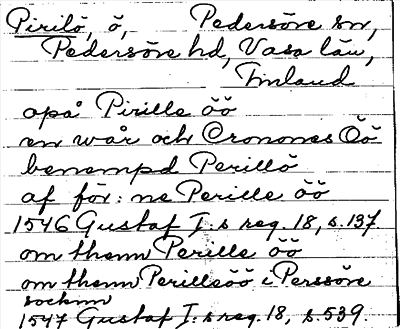 Pirilö, ö, Pedersöre sn,
Pedersöre hd, Vasa län,
Finland
opå Pirille öö
en wår och Cronones Öö
benempd Perillö
af för: ne Perille öö
1546 Gustaf I:s reg. 18, s. 137.
om thenn Perille öö
om thenn Perilleöö i Perssöre
socknn
1547 Gustaf I:s reg. 18, s 539.